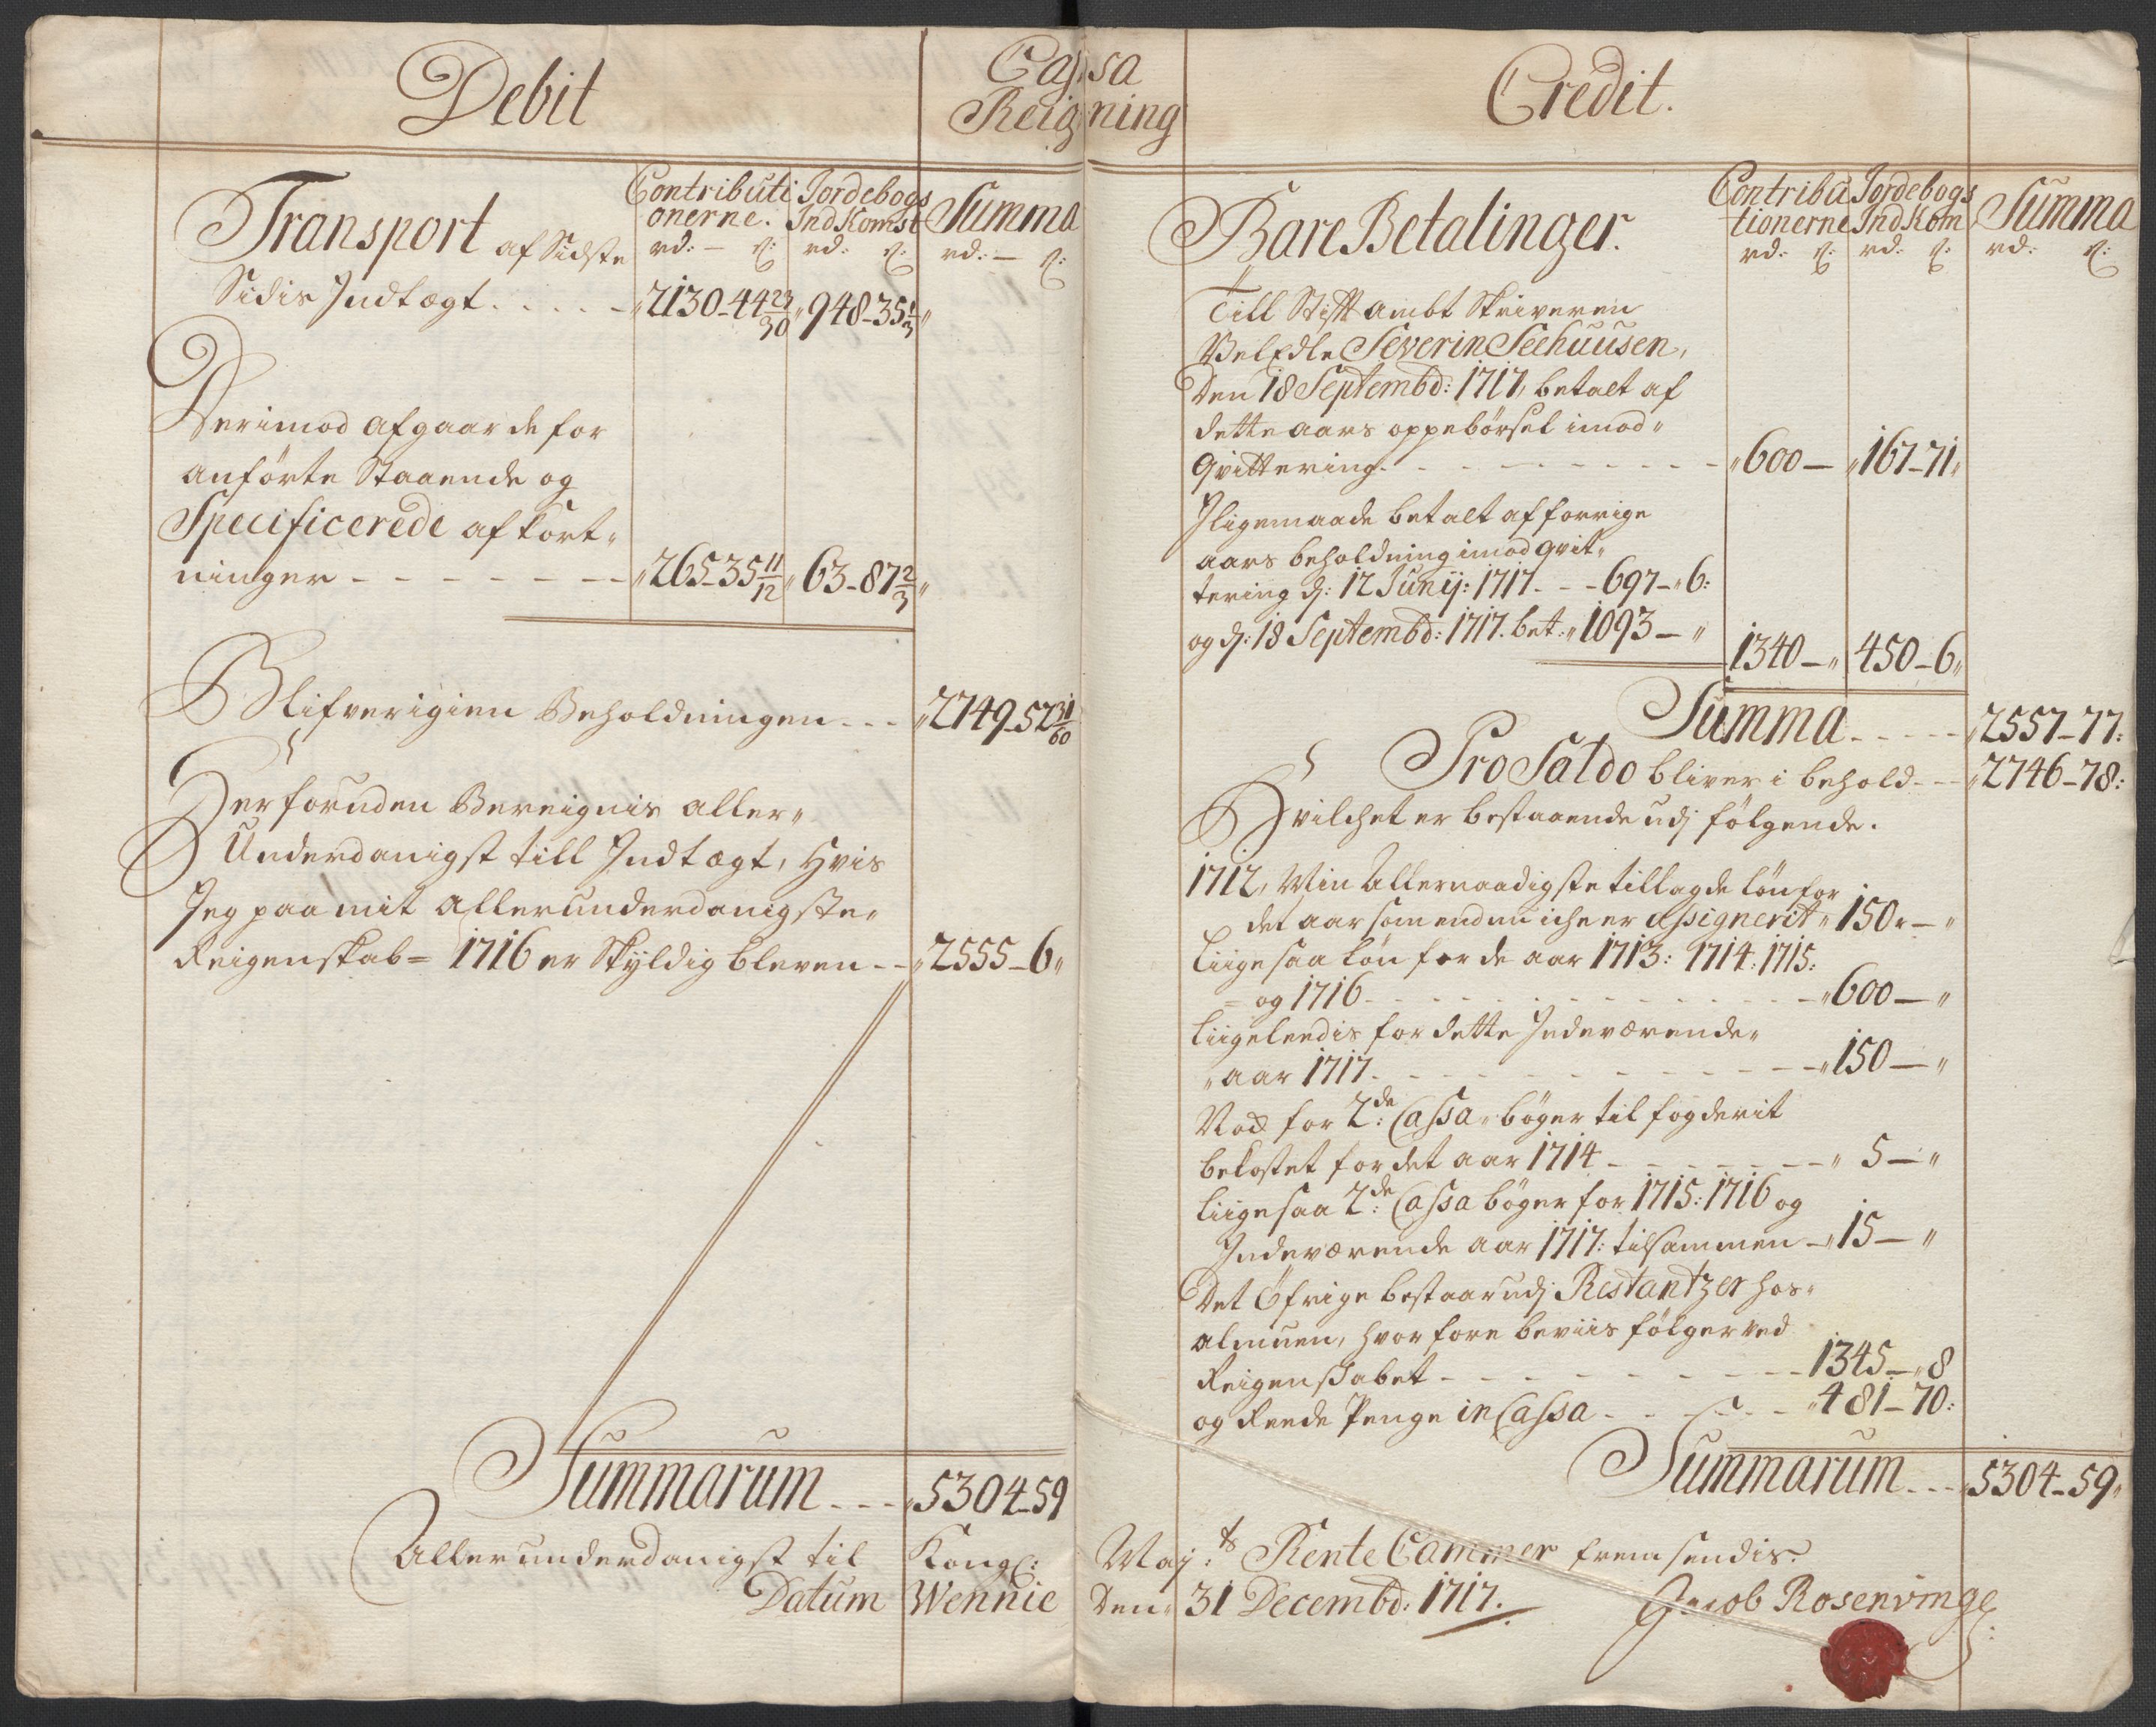 Debit
Cassa
Reigning
Credit.
Contributi
onerne.
Jordebogs
IndKomst
Summa
rd: — ß:
rd: ß:
rd: — ß:
Transport af Sidste
Sidis Indtægt - - - - 2130-44 23/30 948-35 1/3
Derimod afgaar de for
anförte Staaende og
Specificerede afkort„
ninger - - - - - - 265-35 11/12 63-87 2/3
Blifver igien Beholdningen - - - 2749-52 31/60
Der foruden Bereignis aller„
Underdanigst till Indtægt, Hvis
Jeg paa mit allerunderdanigste„
Reigenskab= 1716 er Skyldig bleven - - 2555-6„
Summarum - - - 5304-59
Allerunderdanigst til Kongl:
Datum Wennie
Contribu
tionerne
Jordebogs
IndKom
Summa
rd: ß:
rd: ß:
rd: ß:
Bare Betalinger.
Till Stifftambt Skriveren
VelEdle Severin Seehuusen,
Den 18 Septembd: 1717, betalt af
dette aars oppebörsel imod„
Qvittering - - - - - - - 600 — 167-71„
Iligemaade betalt af forrige
aars beholdning imod qvit„
tering d: 12 Junij: 1717 - - - 697-„6:
og d: 18 Septembd: 1717. bet: „1093 — „
1340 — „ 450-6„
Summa - - - - 2557-77:
Pro Saldo bliver i behold - - 2746-78:
Hvilchet er bestaaende udj följgende.
1712, Min Allernaadigste tillagde lön for
det aar som endnu iche er assignerit „ 150„ — „
Liigesaa lön for de aar 1713: 1714: 1715:
= og 1716 - - - - - - - - „600 — „
Liigeleedis for dette Indeværende„
„aar 1717 - - - - - - - - „150 — „
Nock for 2de: Cassa„ böger til fogderit
bekostet for det aar 1714 - - - - - „ 5 — „
Liigesaa 2de: Cassa böger for 1715: 1716 og
Indeværende aar 1717: tilsammen - „15 — „
Det Öfrige bestaar udj Restantzer hos„
almuen, hvorfore beviis fölger ved
Reigenskabet - - - - - - - 1345 - „8
og Reede Penge in Cassa - - - - „481-70:
Summarum - - - 5304-59„
May:ts Rente Cammer fremsendis.
Den„ 31 Decembd: 1717.
Jacob Rosenvinge